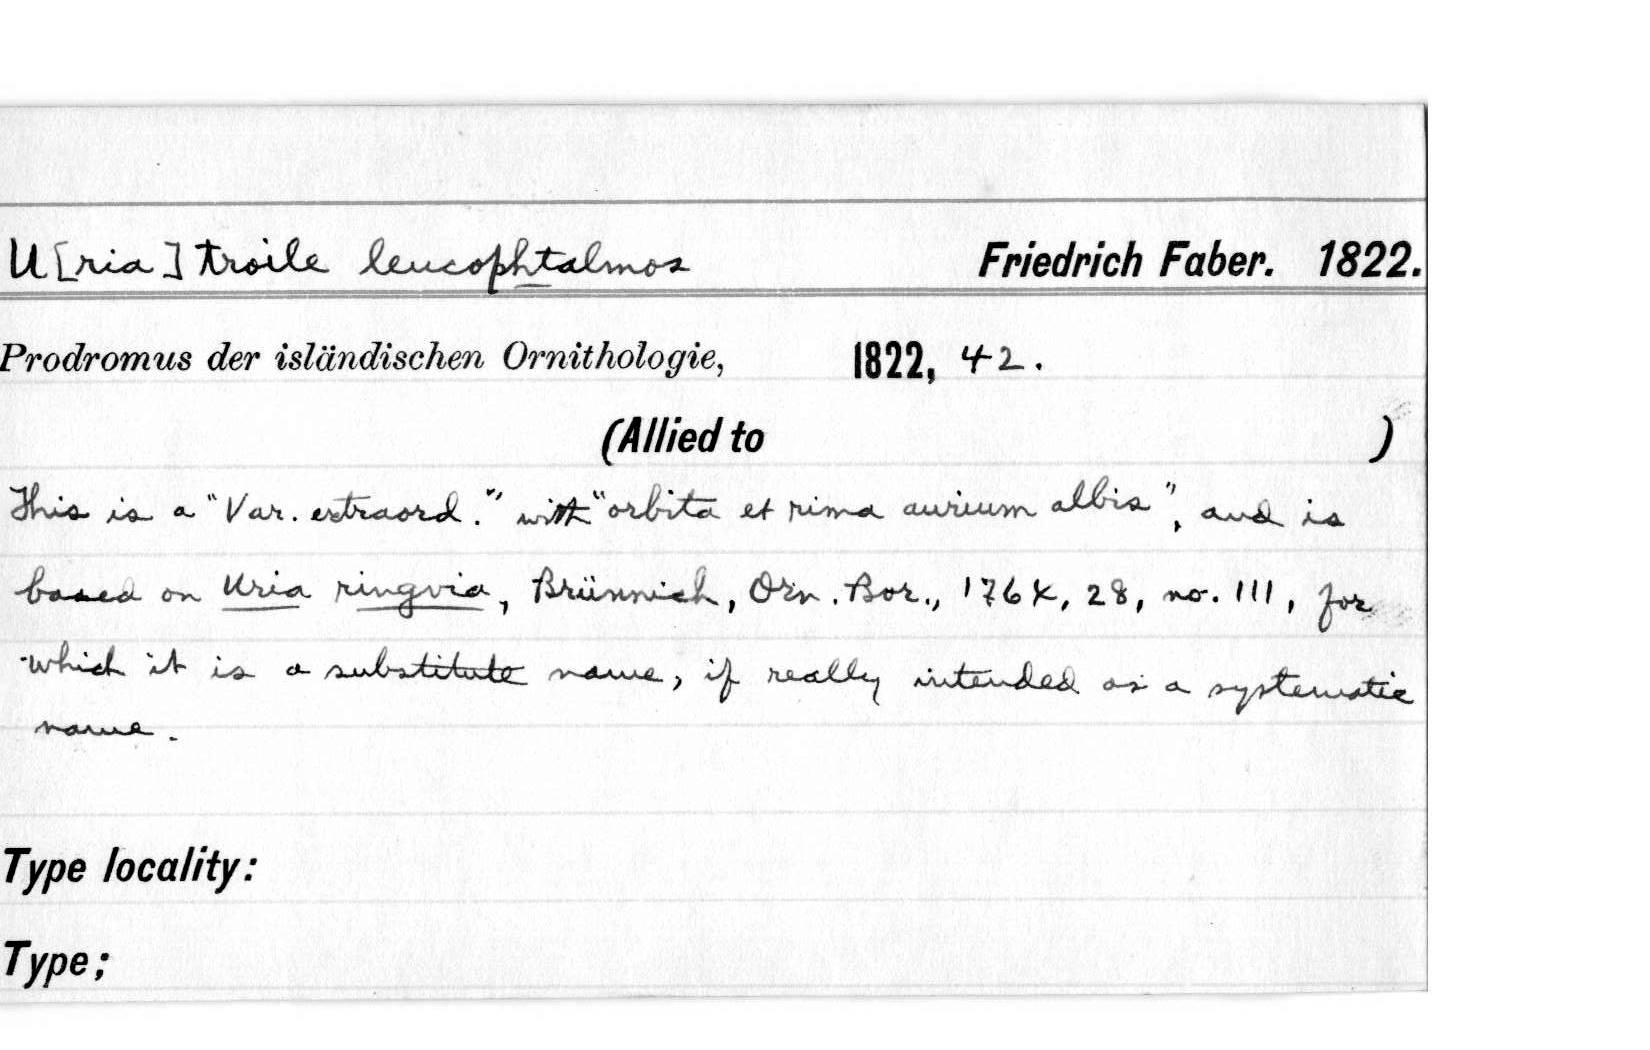 U[ria] troile leucophtalmos Friedrich Faber. 1822.
Prodromus der isländischen Ornithologie, 1822, 42.
(Allied to )
This is a "Var. extraord." with "orbita et rima aurium albis", and is
based on Uria ringvia, Brünnich, Orn. Bor., 1764, 28, no. 111, for
which it is a substitute name, if really intended as a systematic
name.
Type locality:
Type;